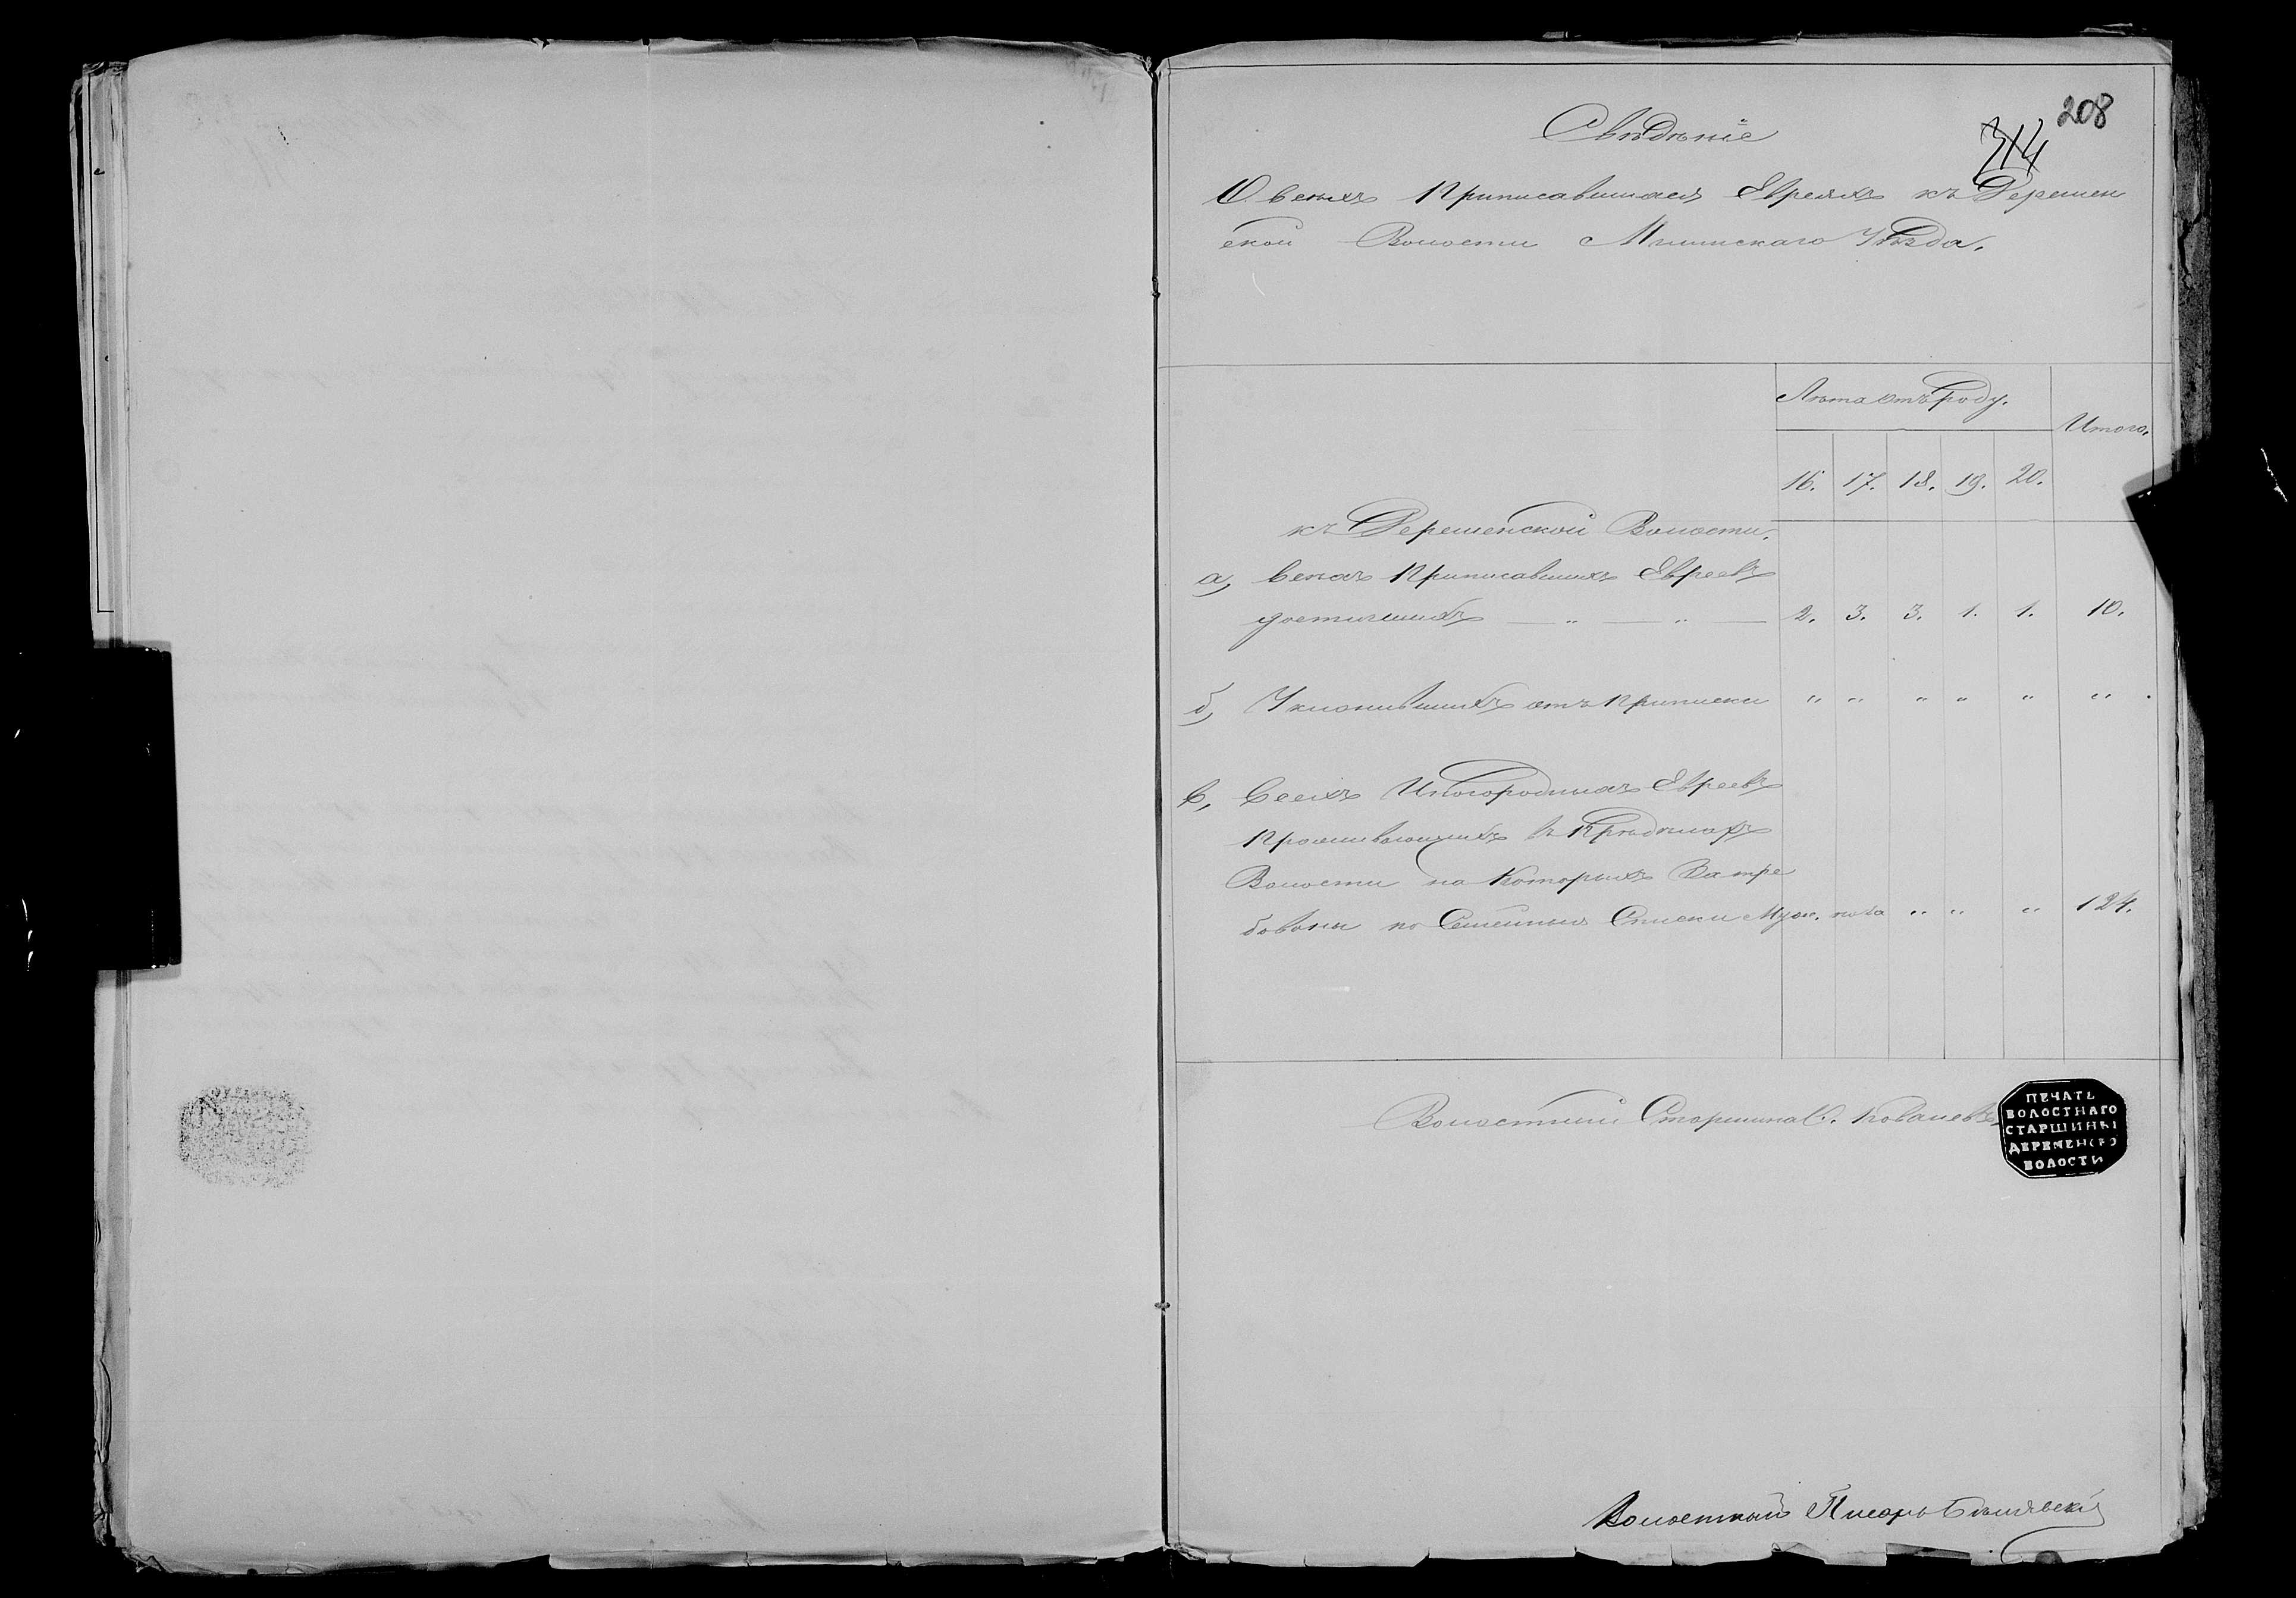 208
314
Свѣдѣніе
О всѣхъ приписавшихся Евреяхъ къ Деремен
ской Волости Мглинскаго Уѣзда.
Лѣта отъ роду.
Итого.
16. 17. 18. 19. 20.
къ Деременской Волости.
а, Всѣхъ приписавшихъ Евреевъ
достигшихъ — " — " — 2. 3. 3. 1. 1. 10.
б, Уклонившихъ отъ приписки " " " " " " .
в, Всехъ Иногородныхъ Евреевъ
проживающихъ въ предѣлахъ
Волости на которыхъ Затре
бованы по Семейныя Списки Муж. пола " " " 124.
Волостный Старшина С. Ковалевъ
ПЕЧАТЬ
ВОЛОСТНАГО
СТАРШИНЫ
ДЕРЕМЕНСКО
ВОЛОСТИ
Волостный Писарь Бѣлявскій